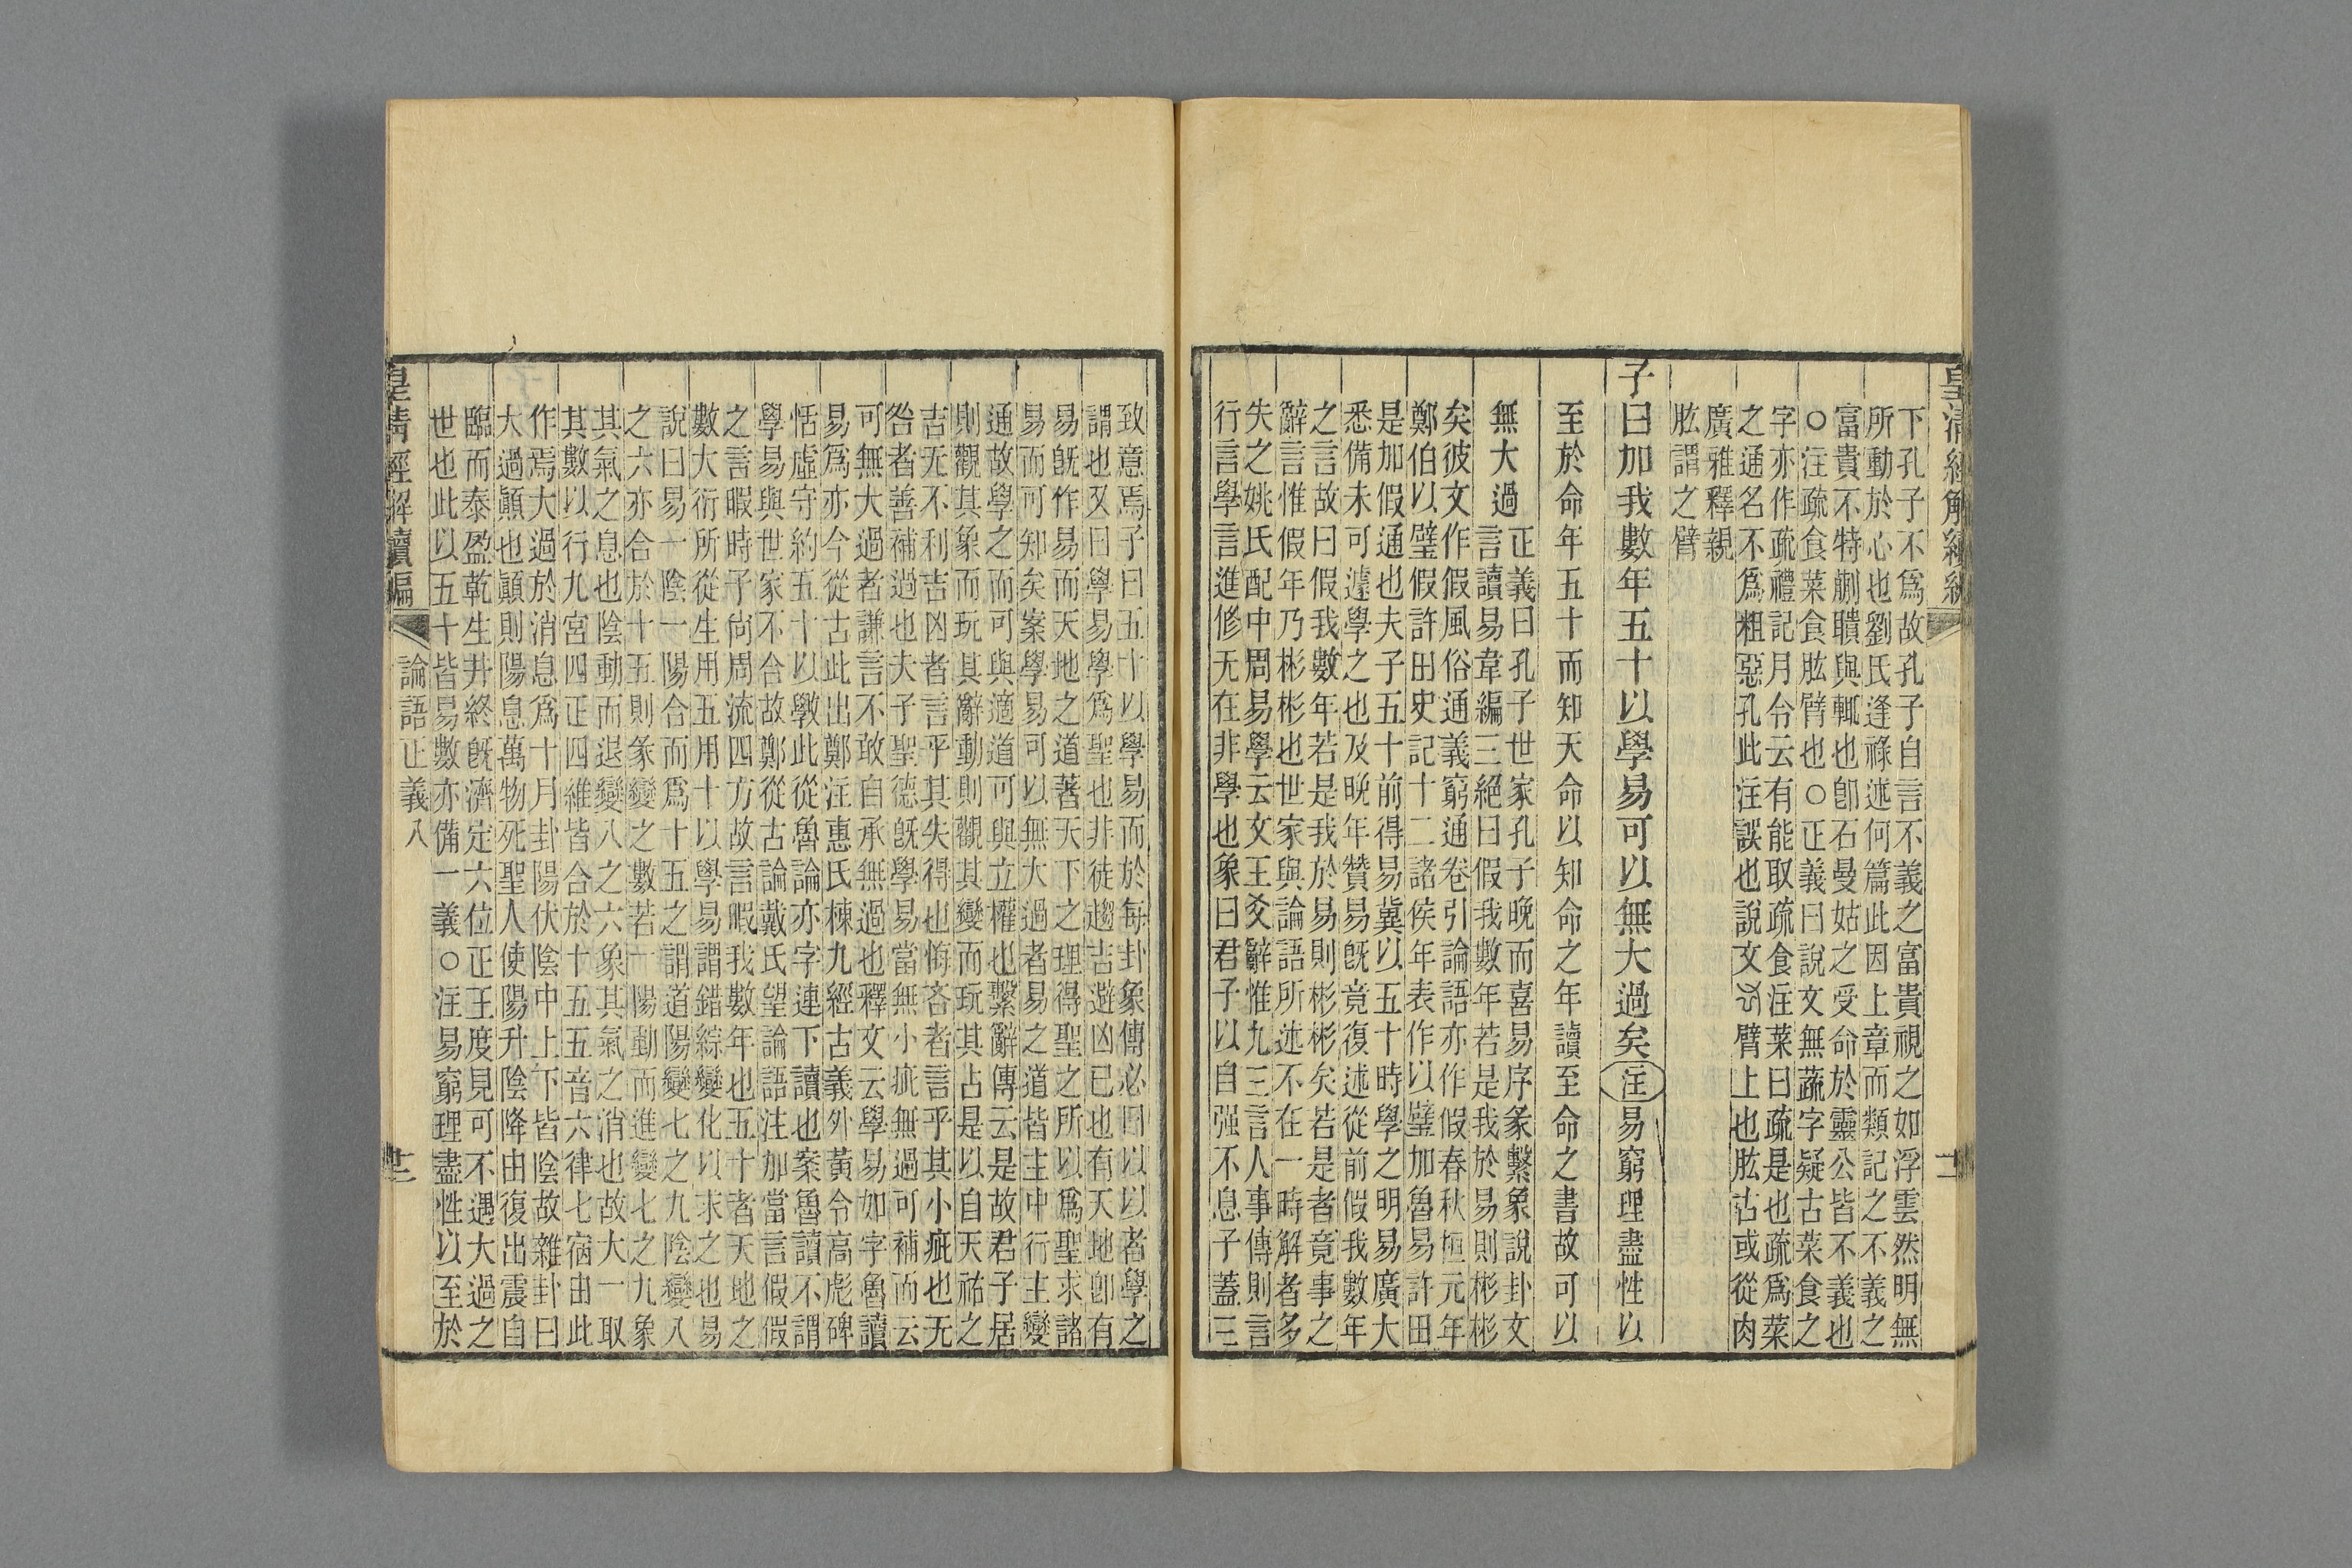 皇清經解續編
下孔子不爲故孔子自言不義之富貴視之如浮雲然明無
所動於心也劉氏逢祿述何篇此因上章而類記之不義之
富貴不特蒯聵與輒也卽石曼姑之受命於靈公皆不義也
○注疏食菜食肱臂也○正義曰說文無蔬字疑古菜食之
字亦作疏禮記月令云有能取疏食注菜曰疏是也疏爲菜
之通名不爲粗惡孔此注誤也說文厷臂上也肱古或從肉
廣雅釋親
肱謂之臂
子曰加我數年五十以學易可以無大過矣注易窮理盡性以
至於命年五十而知天命以知命之年讀至命之書故可以
無大過
正義曰孔子世家孔子晚而喜易序彖繫象說卦文
言讀易韋編三絕曰假我數年若是我於易則彬彬
矣彼文作假風俗通義窮通卷引論語亦作假春秋桓元年
鄭伯以璧假許田史記十二諸侯年表作以璧加魯易許田
是加假通也夫子五十前得易冀以五十時學之明易廣大
悉備未可遽學之也及晚年贊易旣竟復述從前假我數年
之言故曰假我數年若是我於易則彬彬矣若是者竟事之
辭言惟假年乃彬彬也世家與論語所述不在一時解者多
失之姚氏配中周易學云文王爻辭惟九三言人事傳則言
行言學言進修无在非學也象曰君子以自强不息子蓋三
致意焉子曰五十以學易而於每卦象傳必曰以以者學之
謂也又曰學易學爲聖也非徒趨吉避凶已也有天地卽有
易旣作易而天地之道著天下之理得聖之所以爲聖求諸
易而可知矣案學易可以無大過者易之道皆主中行主變
通故學之而可與適道可與立權也繫辭傳云是故君子居
則觀其象而玩其辭動則觀其變而玩其占是以自天祐之
吉无不利吉凶者言乎其失得也悔吝者言乎其小疵也无
咎者善補過也夫子聖德旣學易當無小疵無過可補而云
可無大過者謙言不敢自承無過也釋文云學易如字魯讀
易爲亦今從古此出鄭注惠氏棟九經古義外黃令高彪碑
恬虛守約五十以斆此從魯論亦字連下讀也案魯讀不謂
學易與世家不合故鄭從古論戴氏望論語注加當言假假
之言暇時子尙周流四方故言暇我數年也五十者天地之
數大衍所從生用五用十以學易謂錯綜變化以求之也易
說曰易一陰一陽合而爲十五之謂道陽變七之九陰變八
之六亦合於十五則彖變之數若一陽動而進變七之九象
其氣之息也陰動而退變八之六象其氣之消也故大一取
其數以行九宮四正四維皆合於十五五音六律七宿由此
作焉大過於消息爲十月卦陽伏陰中上下皆陰故雜卦曰
大過顚也顚則陽息萬物死聖人使陽升陰降由復出震自
臨而泰盈乾生井終旣濟定六位正王度見可不遇大過之
世也此以五十皆易數亦備一義○注易窮理盡性以至於
皇清經解續編 論語正義八